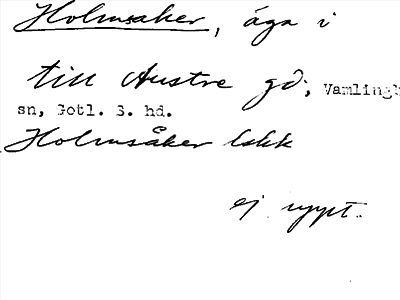 Holmsaker, äga i
till Austre gd, Vamlingb
sn, Gotl. S. hd.
Holmsåker lokk
ej uppt.